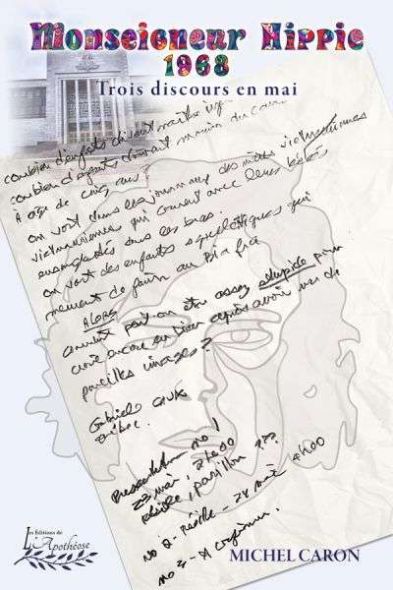 Monseigneur Hippie
1968
Trois discours en mai
combien d'enfants
combien d'enfants
A age de cinq ans?
on voit dans les journaux des mères vietnamiennes
vietnamiennes qui courent avec leurs bébés
ensanglantés dans les bras.
on voit des enfants squelettiques qui
meurent de faim au Biafra
Alors
comment peut-on être assez stupide pour
croire encore en Dieu après avoir vu de
pareilles images?
Gabriel
Québec
Présentation no 1
22 mai, 21h00
pavillon ???
no 2 - 28 mai 4h00
no 3 - A confirmer.
Les Éditions de
L'Apothéose
MICHEL CARON